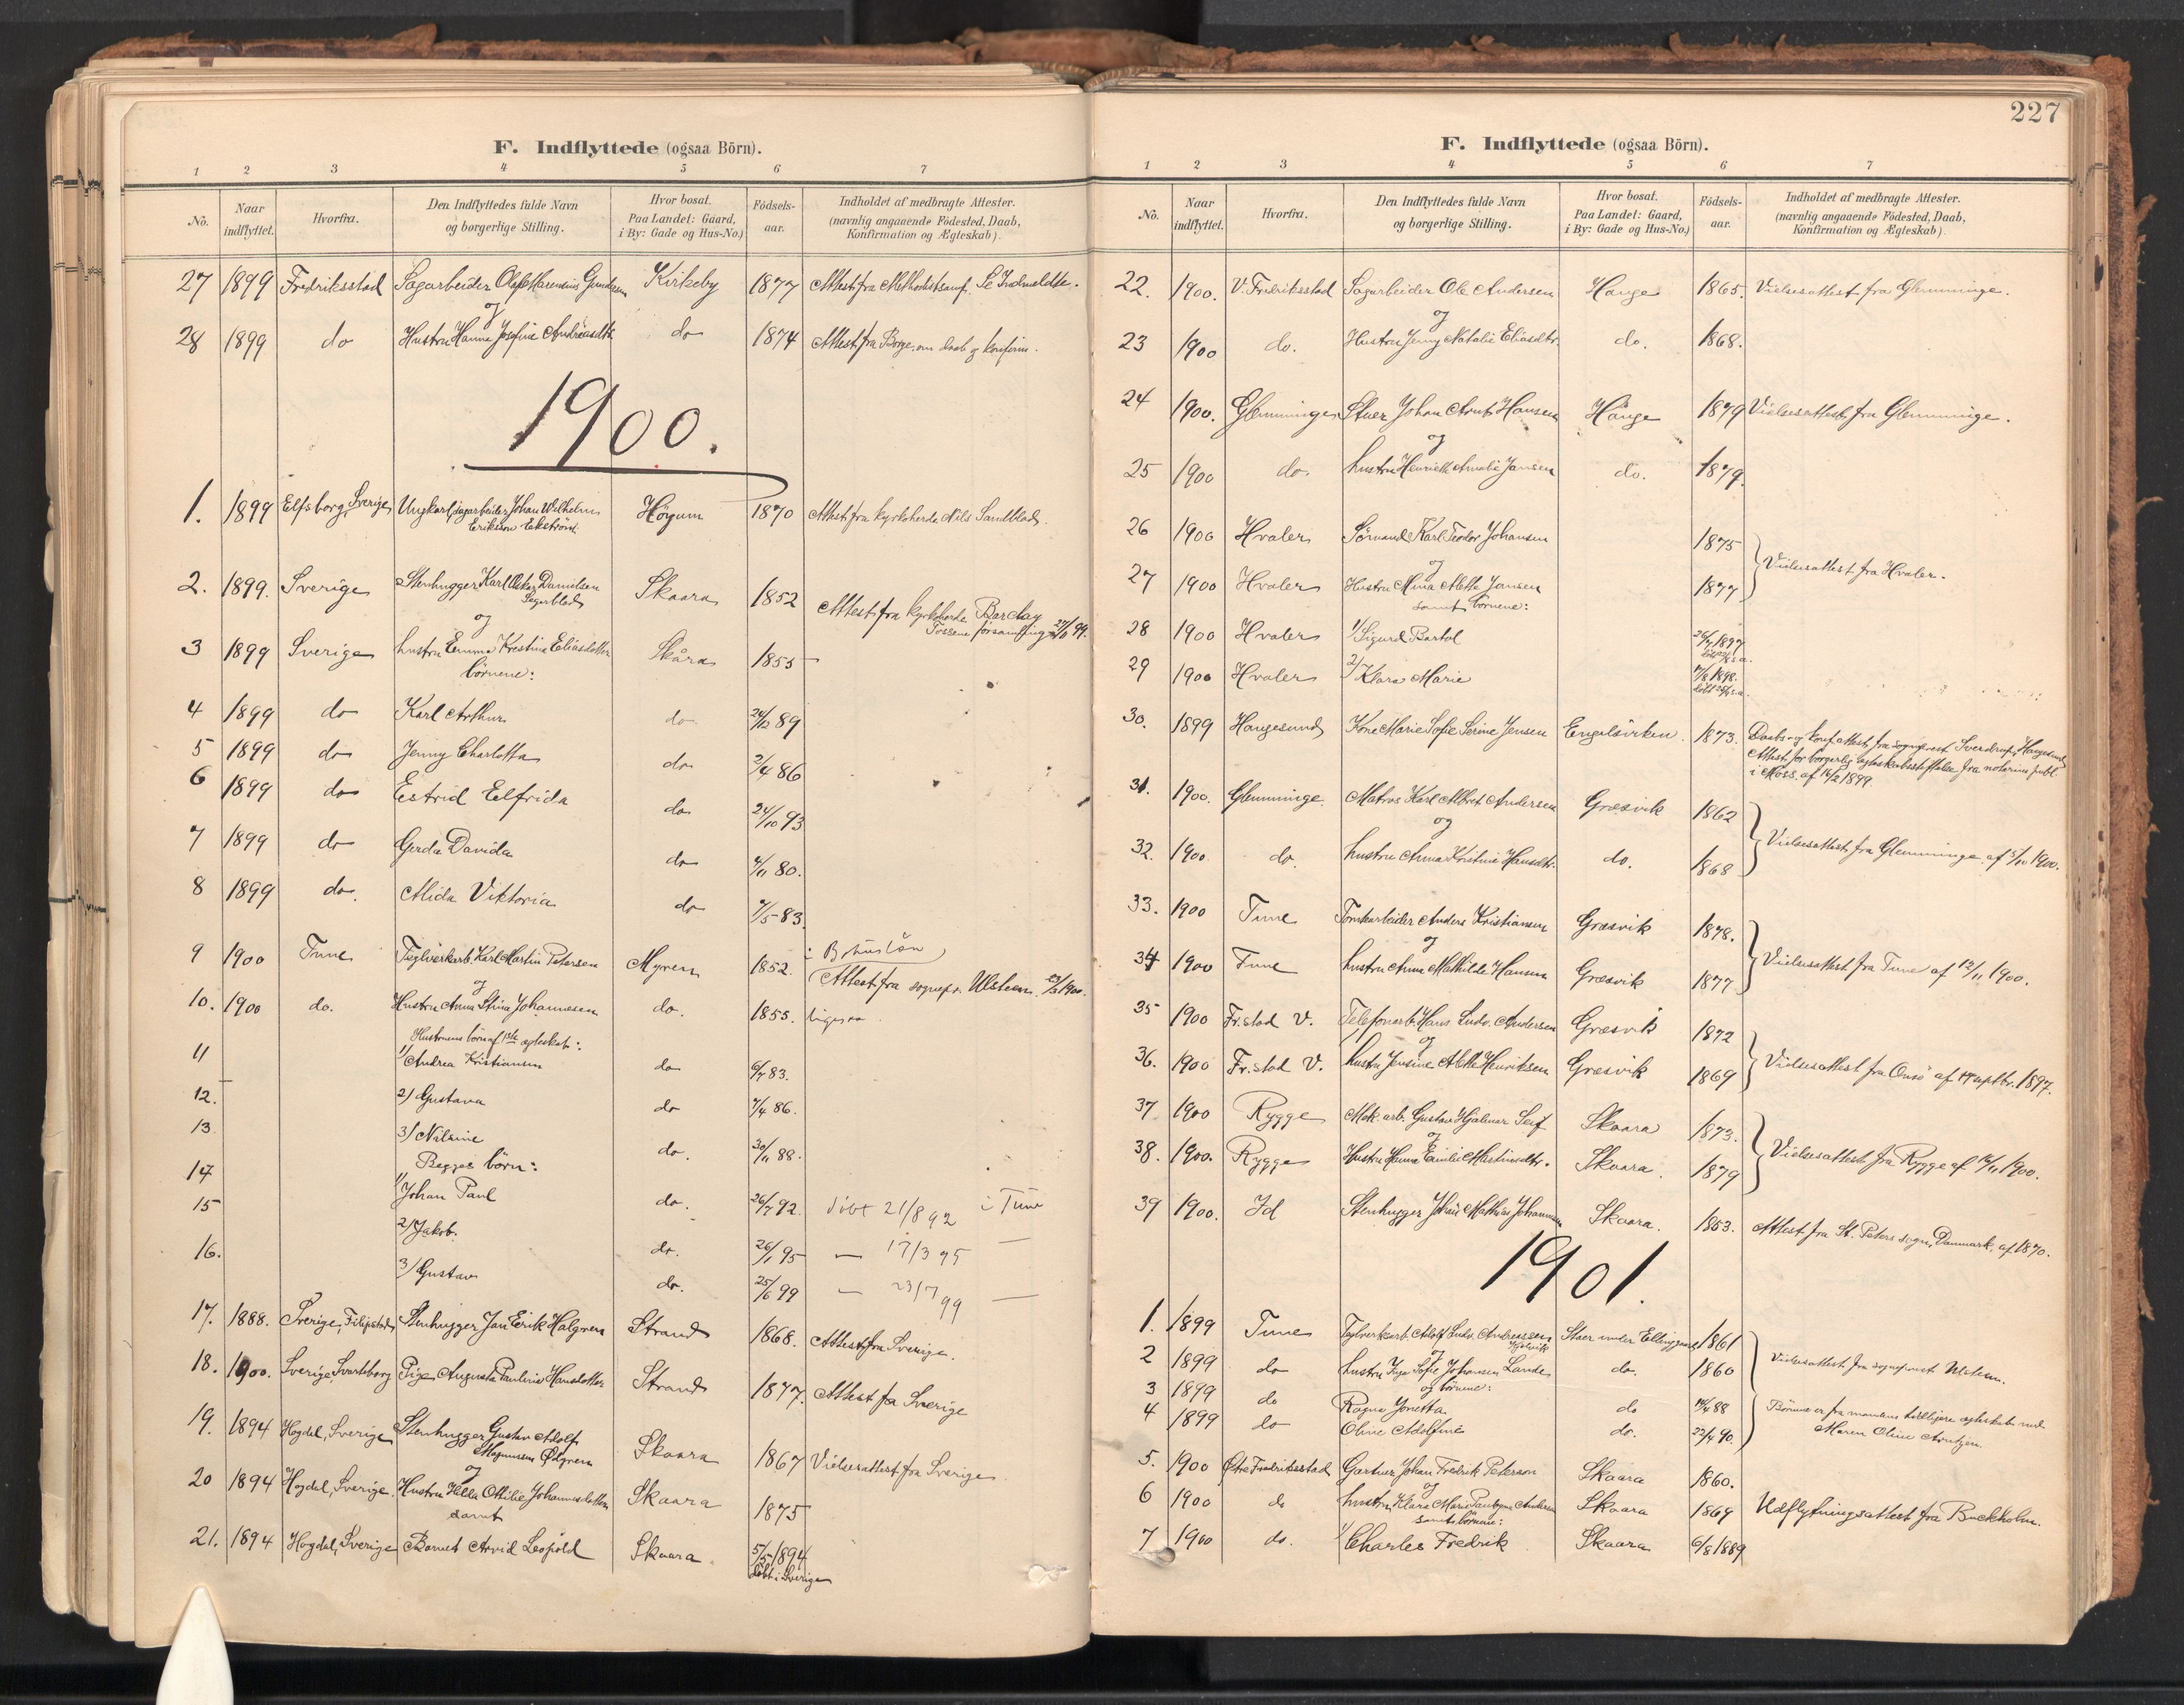 F. Indflyttede (ogsaa Börn).
1 2 3 4 5 6 7
No. Naar indflyttet. Hvorfra. Den Indflyttedes fulde Navn og borgerlige Stilling. Hvor bosat. Paa Landet: Gaard, i By: Gade og Hus-No.) Födsels-aar. Indholdet af medbragte Attester. (navnlig angaaende Födested, Daab, Konfirmation og Ægteskab).
27 1899 Fredriksstad Sagarbeider Olaf Marensius Gundersen Kirkeby 1877 Attest fra Methodistsamf. Se Indmeldte.
og
28 1899 do Hustru Hanna Josefine Andreasdtr do 1874 Attest fra Borge om daab og konfirm.
1900.
1. 1899 Elfsborg, Sverige Ungkarl, sagarbeider Johan Wilhelm Høyum 1870 Attest fra kyrkoherde Nils Sandblad.
Erikson Eckström
2. 1899. Sverige Stenhugger Karl Oskar Danielsen Skaara 1852 Attest fra kyrkoherde Barclay
Tossene församling 99.
og
3 1899 Sverige hustru Emma Kristina Eliasdotter Skåra 1855
børnene:
4 1899 do Karl Arthur do 24/12 89
5 1899 do Jenny Charlotta do 2/4 86
6 1899 do Estrid Elfrida do 24/10 93
7 1899 do Gerda Davida do 80.
8 1899 do. Alida Viktoria do 83
i Bohuslän
9 1900 Tune Teglverkarb. Karl Martin Petersen Myren 1852. Attest fra sognepr. Ulsteen 1900.
og
10. 1900 do. Hustru Anna Stina Johannesen do. 1855. ligesaa
Hustruens børn af 1ste ægteskab:
11 1/ Andrea Kristiansen do 6/7 83.
12. 2) Gustava do 7/4 86.
13 3/ Nilsine do. 30/11 88.
Begges børn:
14 1/ Johan Paul do. 26/7 92 döbt 21/8 92 i Tune
15 2) Jakob. do. 26/1 95 — 17/3 95 —
16. 3/ Gustav do. 25/6 99 — 23/7 99 —
17. 1888. Sverige, Filipstad Stenhugger Jan Erik Halgren Strand 1868. Attest fra Sverige.
18. 1900. Sverige, Svarteborg Pige Augusta Paulina Hansdotter Strand 1877. Attest fra Sverige
19. 1894 Hogdal, Sverige Stenhugger Gustav Adolf Skaara 1867 Vielsesattest fra Sverige.
Magnussen
og
20 1894 Hogdal, Sverige. Hustru Hilda Ottilia Johannesdotter Skaara 1875
samt
21. 1894 Hogdal, Sverige Barnet Arvid Leopold Skaara. 5/5 1894
döbt i Sverige
227
F. Indflyttede (ogsaa Börn).
1 2 3 4 5 6 7
No. Naar indflyttet. Hvorfra. Den Indflyttedes fulde Navn og borgerlige Stilling. Hvor bosat. Paa Landet: Gaard, i By: Gade og Hus-No.) Födsels-aar. Indholdet af medbragte Attester. (navnlig angaaende Födested, Daab, Konfirmation og Ægteskab).
22. 1900. V. Fredriksstad Sagarbeider Ole Andersen Hauge 1865. Vielsesattest fra Glemminge.
og
23 1900 do. Hustru Jenny Natalie Eliasdtr. do. 1868.
24 1900. Glemminge Stuer Johan Arnt Hansen Hauge 1879 Vielsesattest fra Glemminge.
og
25 1900 do. hustru Henriette Amalie Jansen do. 1879.
26 1900 Hvaler Sømand Karl Teodor Johansen 1875 Vielsesattest fra Hvaler.
og
27 1900 Hvaler Hustru Mina Mette Jansen 1877
samt børnene:
28 1900 Hvaler 1/ Sigurd Bartol 1897
29 1900 Hvaler 2/ Klara Marie 1898.
30. 1899 Haugesund Kone Marie Sofie Serine Jensen Engelsviken. 1873. Daabs- og konf. attest fra sogneprest Sverdrup, Haugesund
Attest for borgerlig ægteskabsstiftelse fra notarius publ.
i Moss. af 16/2 1899.
31. 1900. Glemminge. Matros Karl Albert Andersen Græsvik 1862 Vielsesattest fra Glemminge af 5/11 1900.
og
32. 1900 do. hustru Anna Kristine Hansdtr. do. 1868
33. 1900 Tune Tomtearbeider Anders Kristiansen Græsvik 1878. Vielsesattest fra Tune af 12/11 1900.
og
34 1900 Tune hustru Anna Mathilde Hansen Græsvik 1877
35 1900 Fr.stad V. Telefonarb. Hans Ludv. Andersen Græsvik 1872 Vielsesattest fra Onsö af septbr. 1897.
og
36. 1900 Fr.stad V. hustru Jensine Alette Henriksen Græsvik 1869
37 1900 Rygge Mek. arb. Gustav Hjalmar Seif Skaara 1873. Vielsesattest fra Rygge af 1900.
og
38. 1900. Rygge Hustru Hanna Emilie Martinsdtr. Skaara. 1879
39 1900. Id Stenhugger Mathias Johannsen Skaara. 1853. Attest fra St. Peters sogn, Danmark, af 1870.
1901.
1. 1899 Tune Teglverksarb. Adolf Ludv. Andreassen Stuer under 1861 Vielsesattest fra sogneprest Ulsteen.
og
2 1899 do hustru Inga Sofie Johansen Lande do. 1860
og børnene:
3 1899 do Ragna Jonetta do 88 Börnene er fra mandens tidligere ægteskab med
4 1899 do Oline Adolfine do. 22/4 90. Maren Oline Arntzen.
5. 1900 Østre Fredriksstad Gartner Johan Fredrik Peterson Skaara 1860.
og
6 1900 do hustru Klara Marie Andersen Skaara 1869 Udflytningsattest fra Buckholm.
samt börnene:
7 1900 do. 1/ Charles Fredrik Skaara 6/8 1889